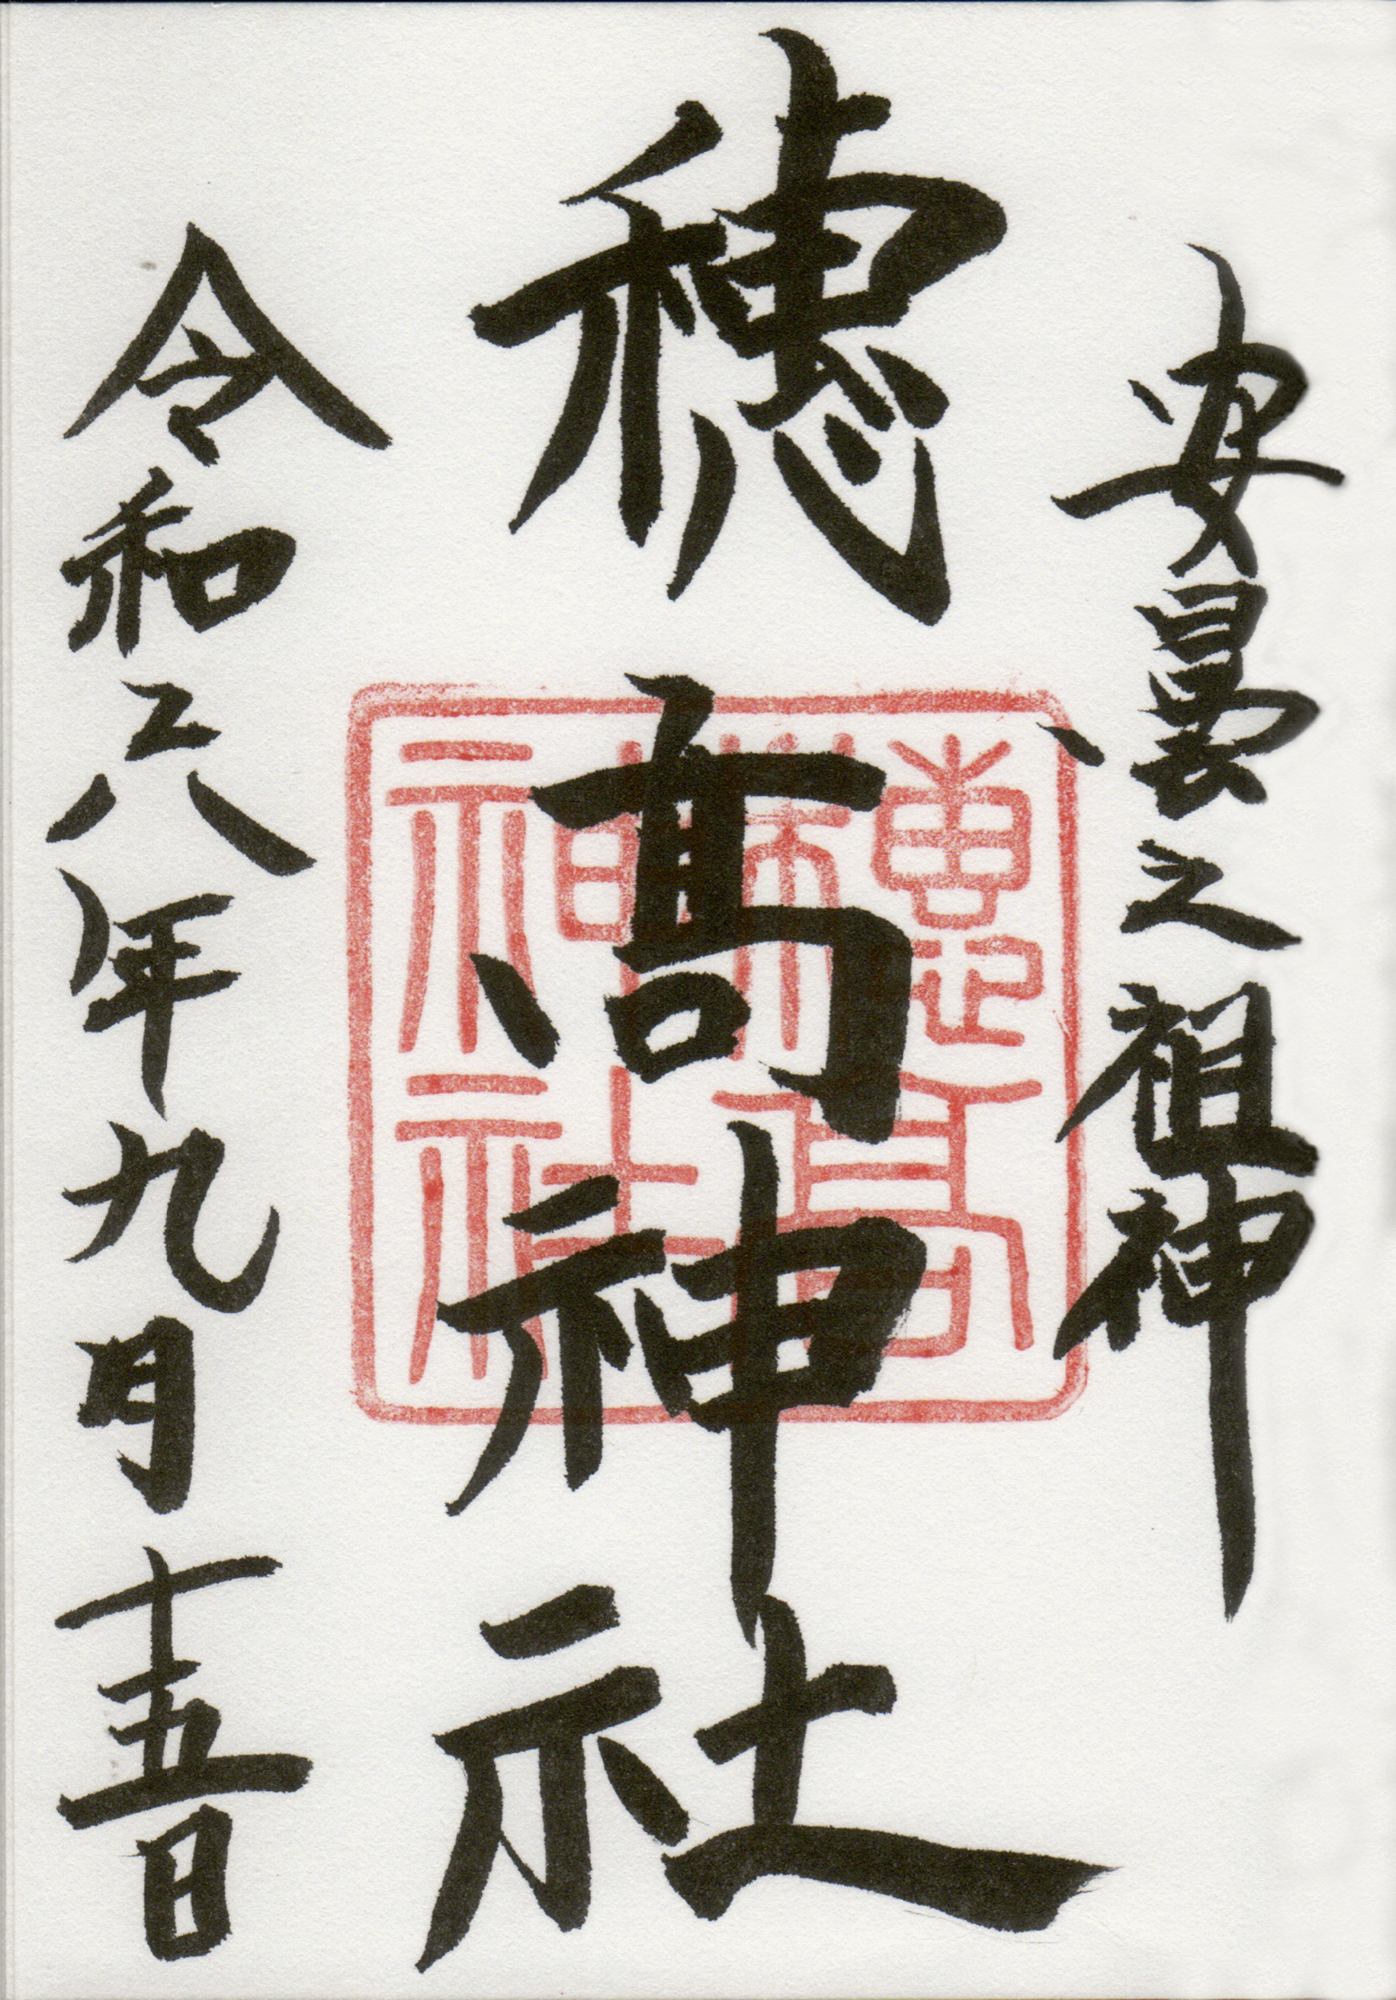 安曇之祖神
穂髙神社
穗髙神社
令和六年九月十五日